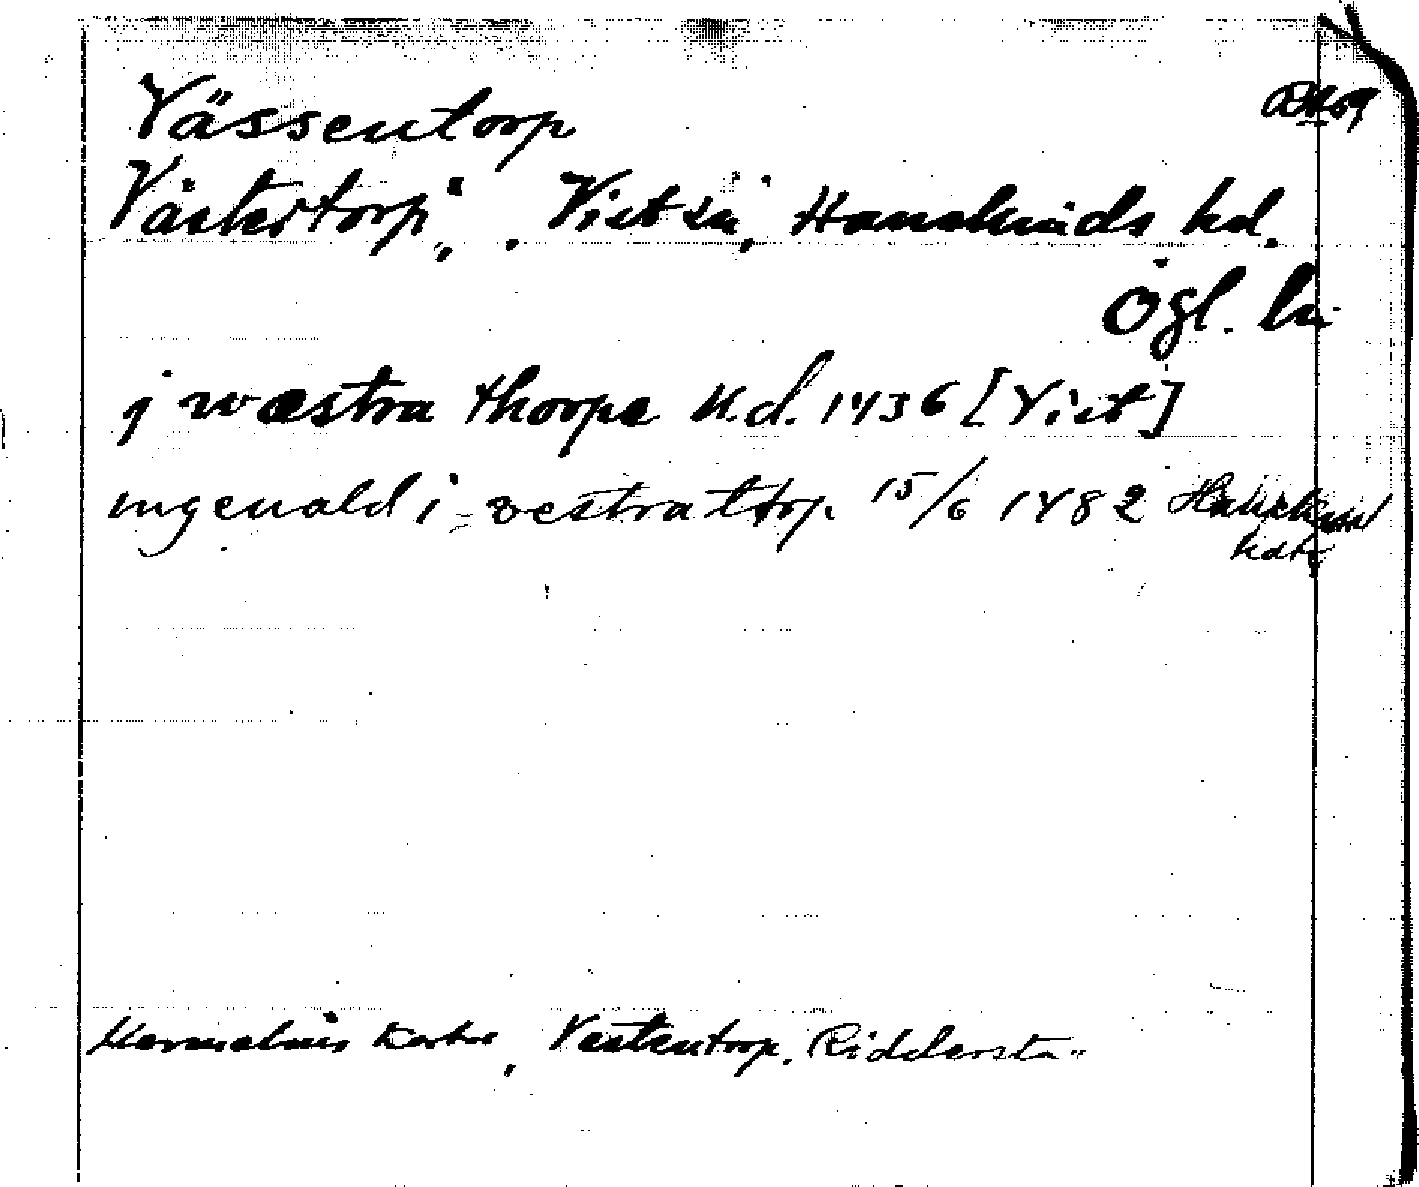 Vässentorp
Västertorp, Vist sn, Hanekinds hd.
Ögl. län
j wæstra thorpe u.d. 1436 [Vist]
ingeuald i vestra ttorp 15/6 1482 Hanekinds
hdb
Hermelins karta, Vestentorp, Riddersta